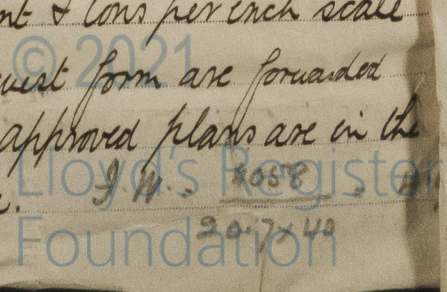 nt & tons per inch scale
© 2021
uest form are forwarded
approved plans are in the
Lloyd's Register
Foundation